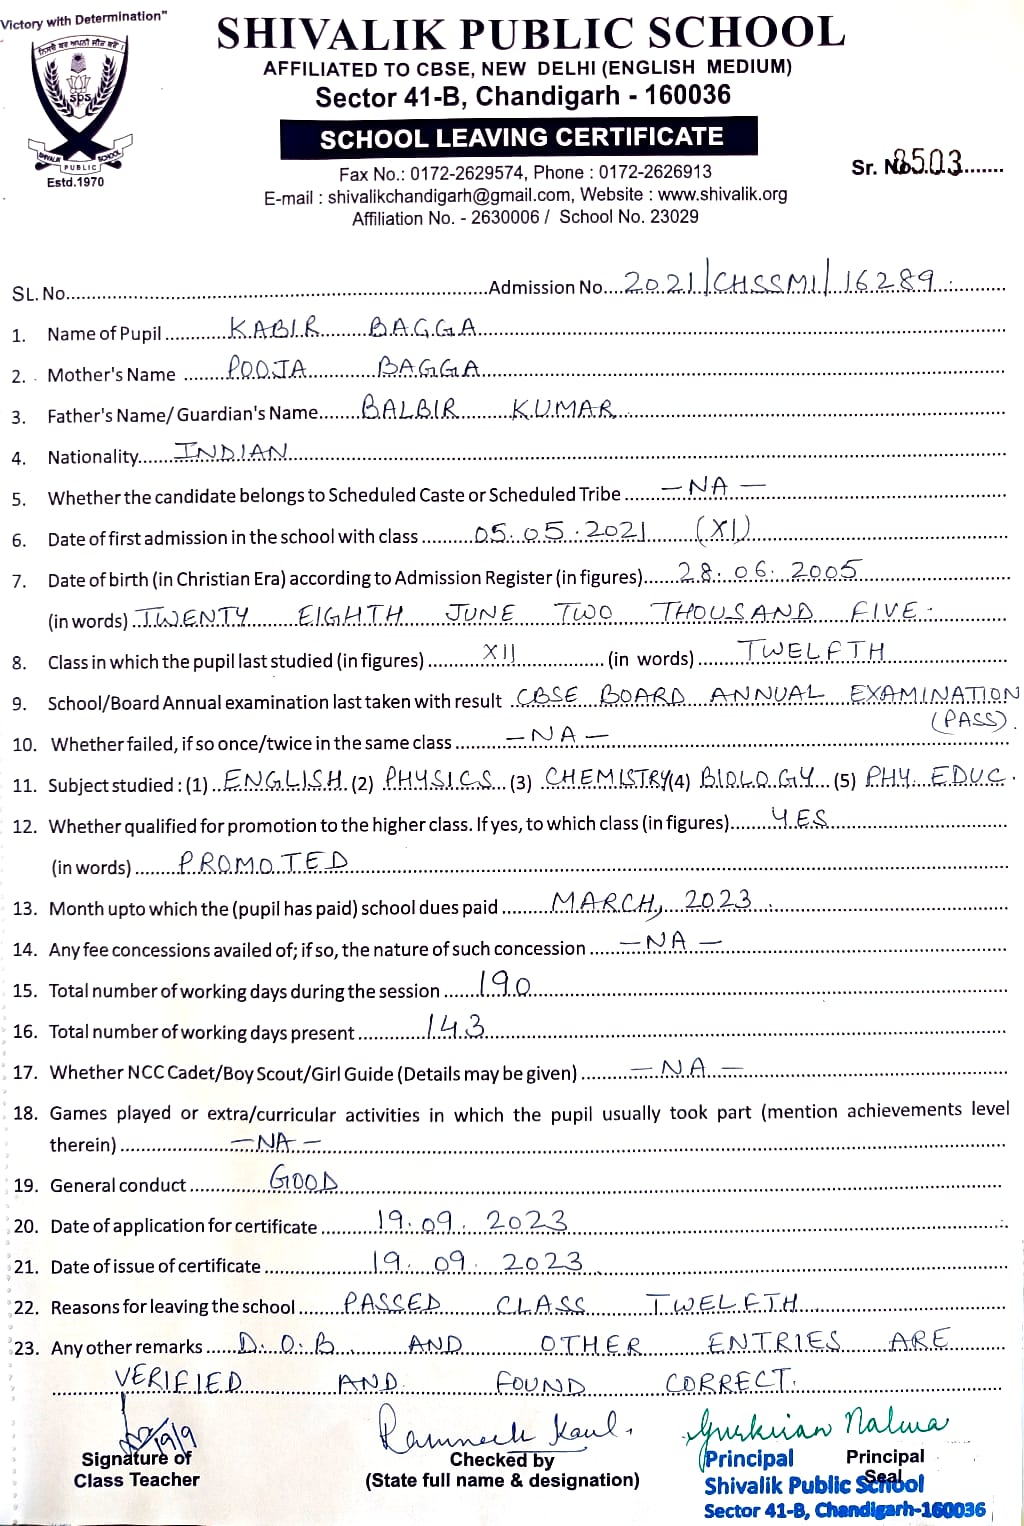 Victory with Determination"
SHIVALIK PUBLIC SCHOOL
AFFILIATED TO CBSE, NEW DELHI (ENGLISH MEDIUM)
Sector 41-B, Chandigarh - 160036
SCHOOL LEAVING CERTIFICATE
SPS
SHIVALIK PUBLIC SCHOOL
Estd.1970
Sr. No. 8503
Fax No.: 0172-2629574, Phone : 0172-2626913
E-mail : shivalikchandigarh@gmail.com, Website : www.shivalik.org
Affiliation No. - 2630006 / School No. 23029
SL. No. Admission No. 2021/CHSSMI/16289
1. Name of Pupil KABIR BAGGA
2. Mother's Name POOJA BAGGA
3. Father's Name/ Guardian's Name BALBIR KUMAR
4. Nationality INDIAN
5. Whether the candidate belongs to Scheduled Caste or Scheduled Tribe - NA -
6. Date of first admission in the school with class 05.05.2021 (XI)
7. Date of birth (in Christian Era) according to Admission Register (in figures) 28.06.2005
(in words) TWENTY EIGHTH JUNE TWO THOUSAND FIVE.
8. Class in which the pupil last studied (in figures) XII (in words) TWELFTH
9. School/Board Annual examination last taken with result CBSE BOARD ANNUAL EXAMINATION
(PASS).
10. Whether failed, if so once/twice in the same class - NA -
11. Subject studied : (1) ENGLISH (2) PHYSICS (3) CHEMISTRY (4) BIOLOGY (5) PHY. EDUC.
12. Whether qualified for promotion to the higher class. If yes, to which class (in figures) YES
(in words) PROMOTED
13. Month upto which the (pupil has paid) school dues paid MARCH, 2023
14. Any fee concessions availed of; if so, the nature of such concession - NA -
15. Total number of working days during the session 190
16. Total number of working days present 143
17. Whether NCC Cadet/Boy Scout/Girl Guide (Details may be given) - NA -
18. Games played or extra/curricular activities in which the pupil usually took part (mention achievements level
therein) - NA -
19. General conduct GOOD
20. Date of application for certificate 19.09.2023
21. Date of issue of certificate 19.09.2023
22. Reasons for leaving the school PASSED CLASS TWELFTH
23. Any other remarks D.O.B AND OTHER ENTRIES ARE
VERIFIED AND FOUND CORRECT.
19/9 Kaul. Nalwa
Signature of Class Teacher
Checked by
(State full name & designation)
Principal
Seal
Principal
Shivalik Public School
Sector 41-B, Chandigarh-160036